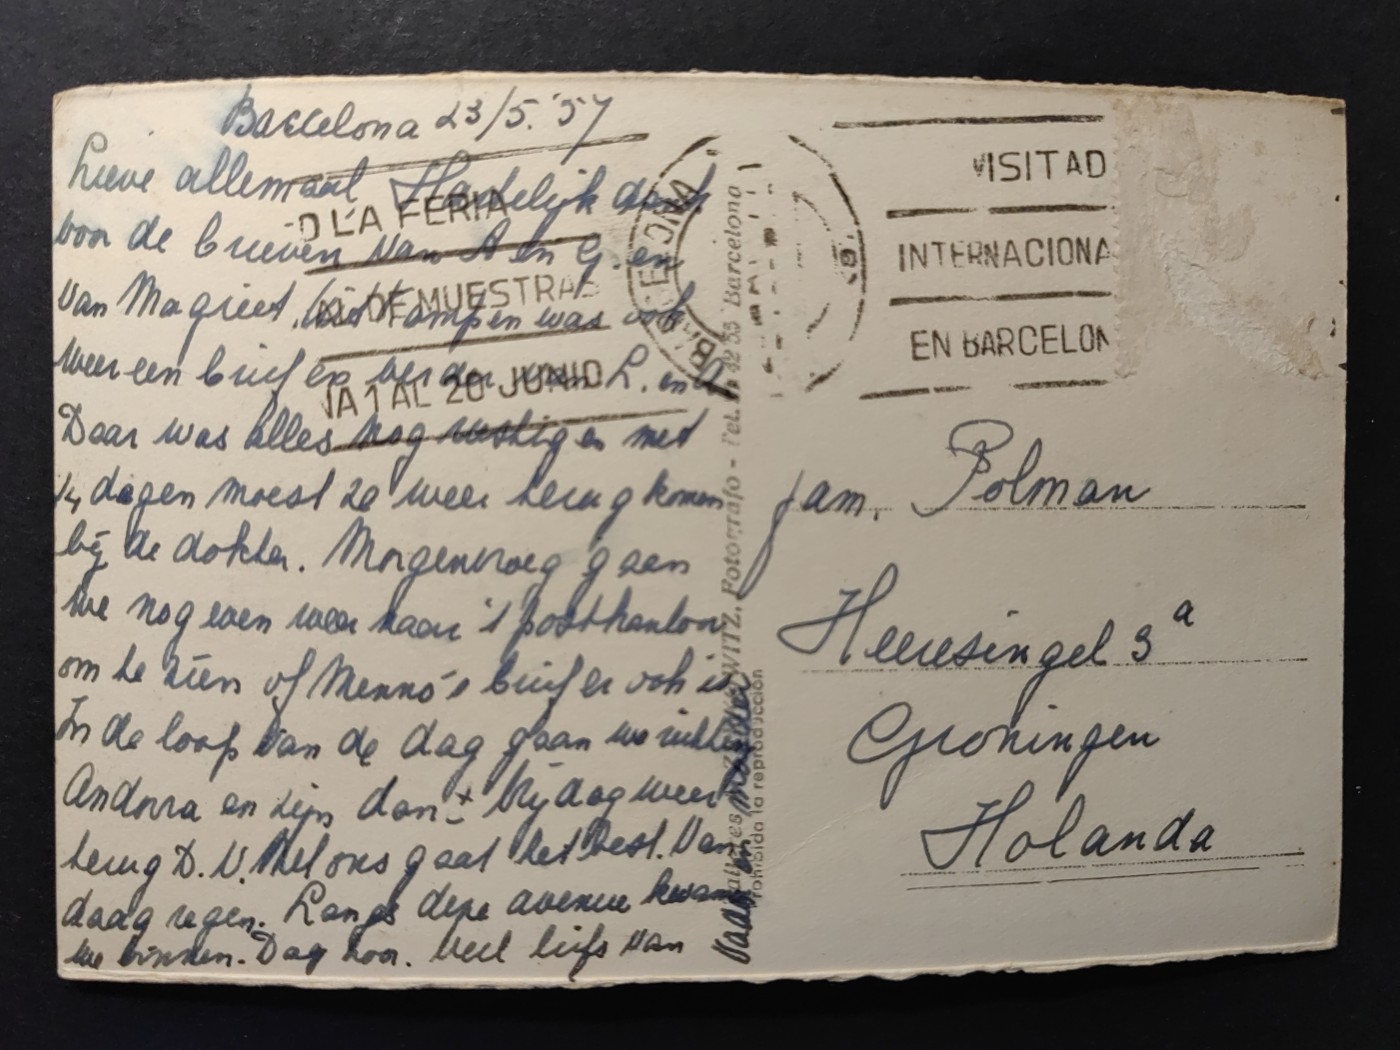 Barcelona 23/5.'57
Lieve allemaal Hartelijk dank
voor de brieven van A en G. en
van Magriet, uit Kampen was ook
weer een brief en verder van L. en
Daar was alles nog rustig en met
14 dagen moest ze weer terug komen
bij de dokter. Morgenvroeg gaan
we nog even weer naar 't postkantoor
om te zien of Menno's brief er ook is
In de loop van de dag gaan we richting
Andorra en zijn dan ± vrijdag weer
terug D.V. Met ons gaat het best. Van
daag regen. Langs deze avenue kwamen
we binnen. Dag hoor. Veel liefs van
Vader en Moeder
D LA FERIA
DE MUESTRAS
NA 1 AL 20 JUNIO
BARCELONA
VISITAD
INTERNACIONA
EN BARCELON
WITZ, Fotografo - Tel. 32 55 Barcelona
Prohibida la reproducción
fam. Polman
Heeresingel 3a
Groningen
Holanda